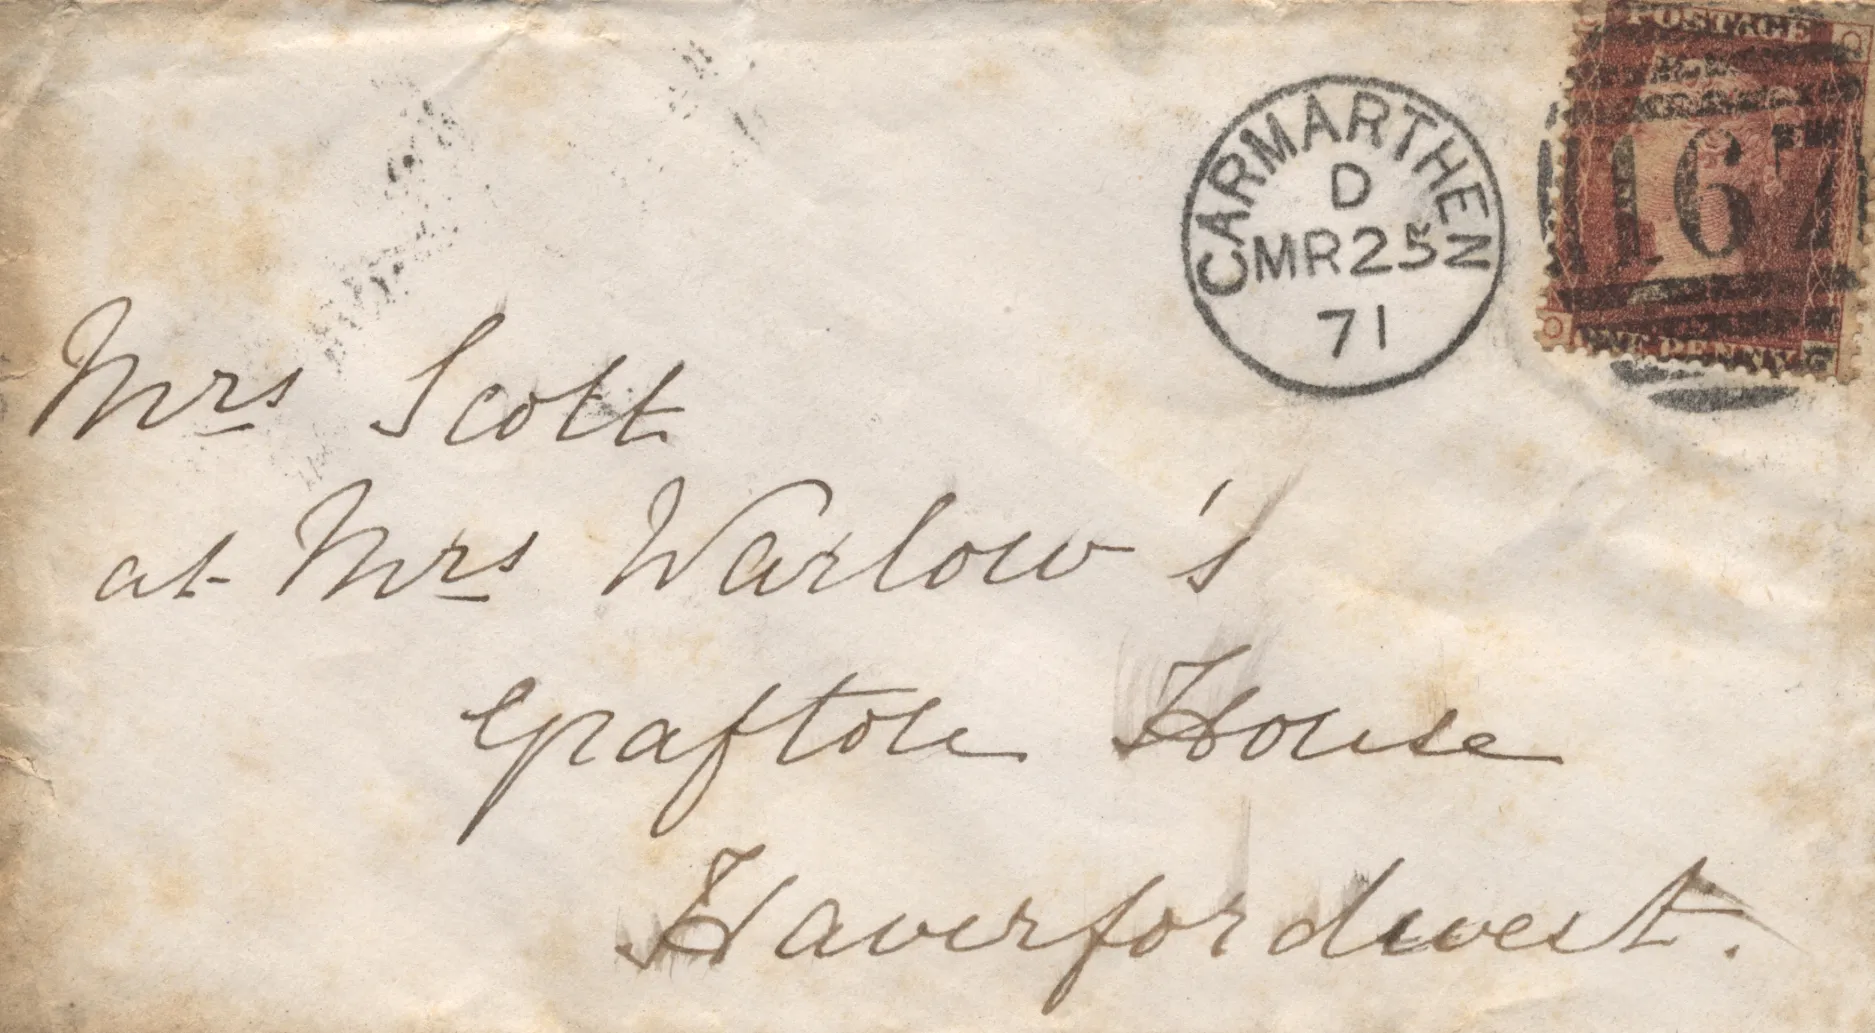 POSTAGE
CARMARTHEN
D
MR25
71
167
ONE PENNY
Mrs Scott
at Mrs Warlow's
Grafton House
Haverfordwest.